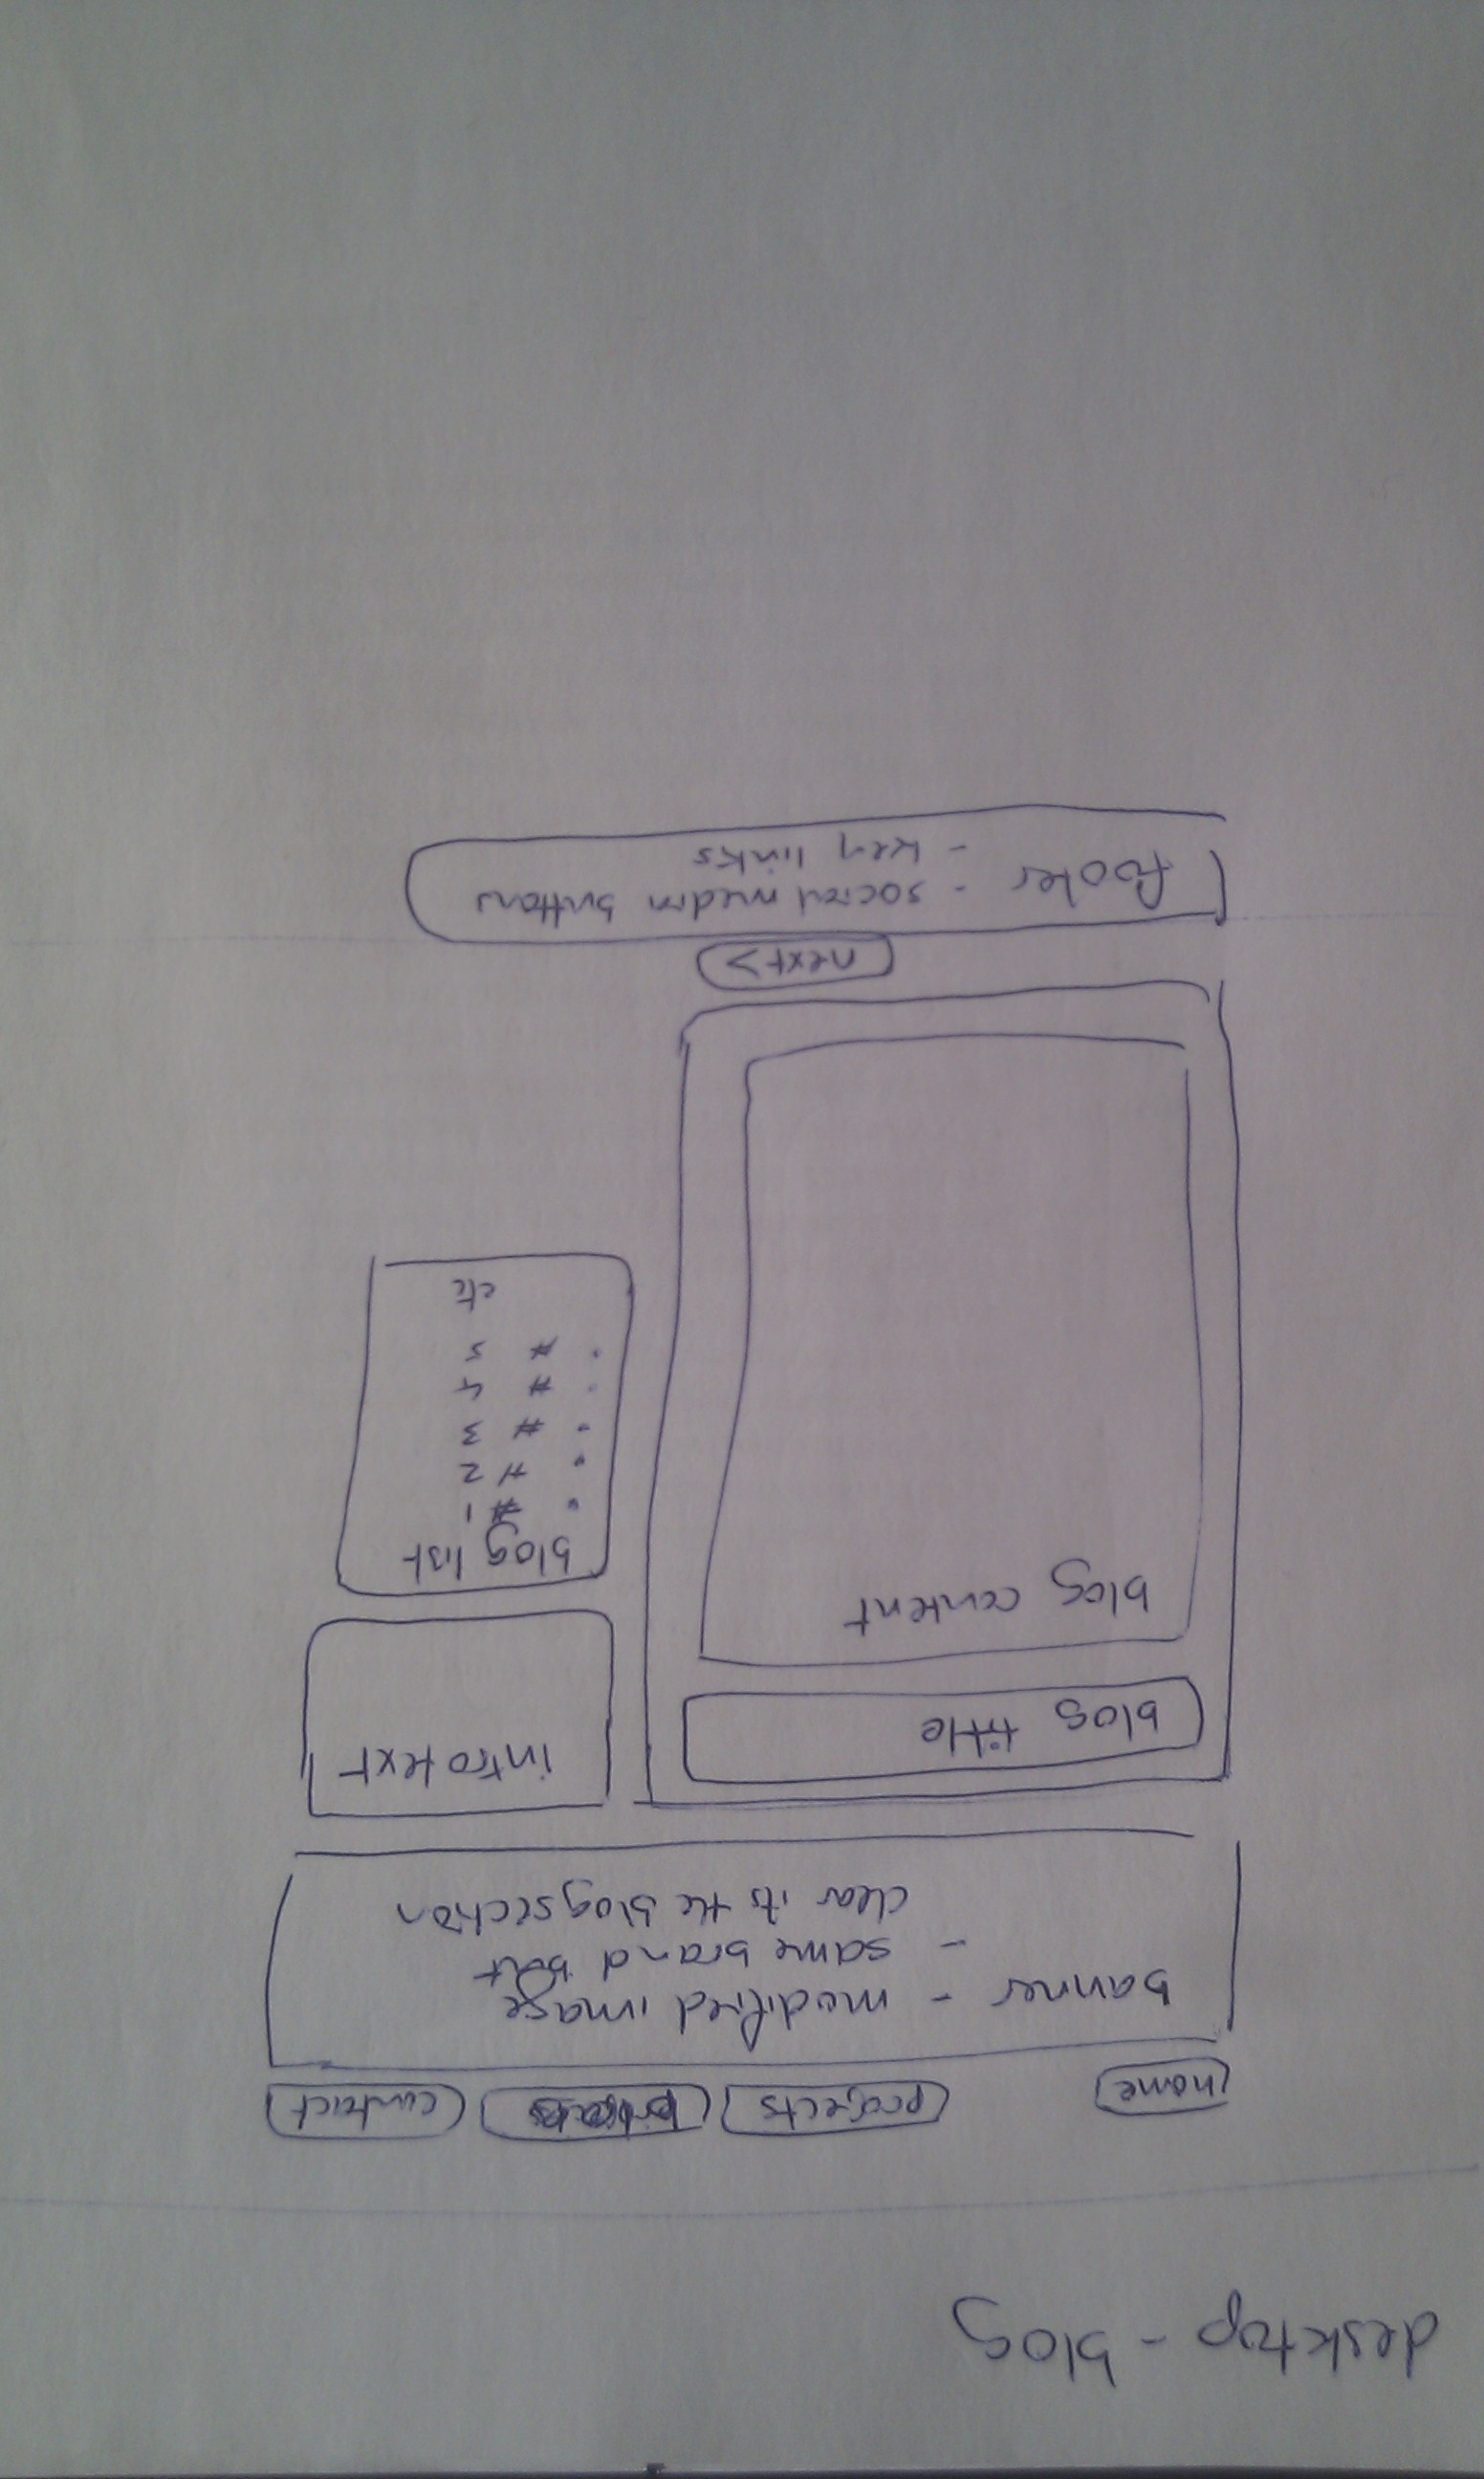 desktop - blog
home projects contact
banner - modified image
- same brand but
clear its the blog section
blog title
blog content
intro text
blog list
• # 1
• # 2
• # 3
• # 4
• # 5
etc
next >
footer - social media buttons
- key links